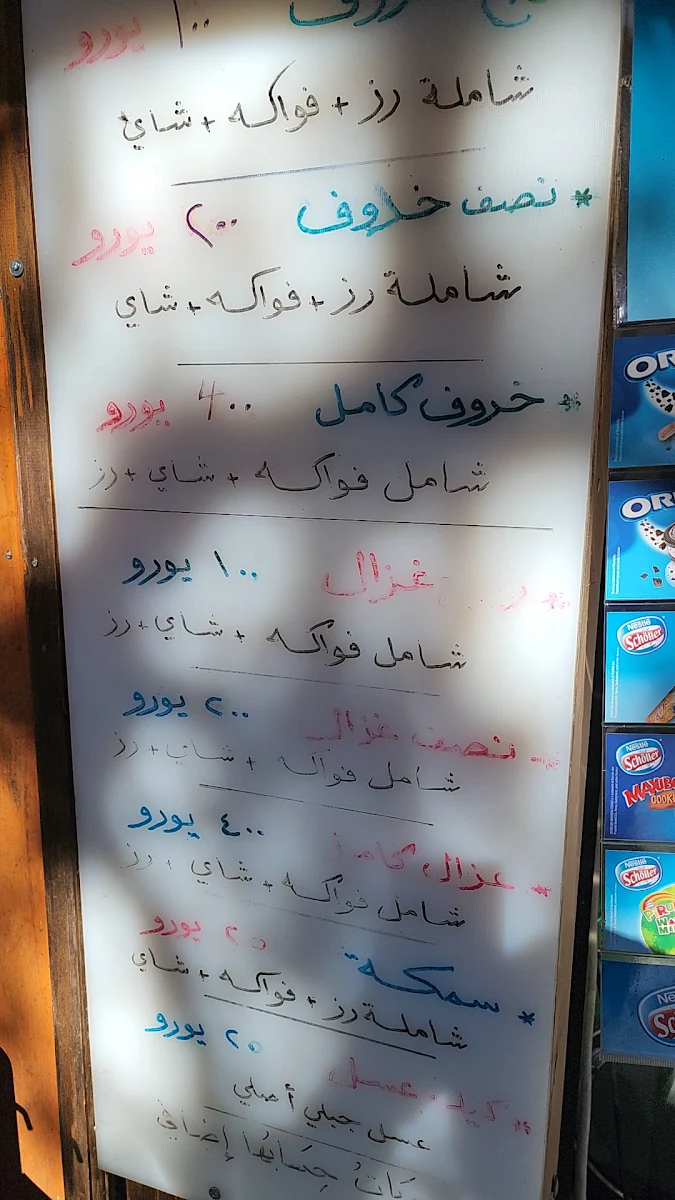 خروف ١٠٠ يورو
شاملة رز + فواكه + شاي
* نصف خروف ٢٠٠ يورو
شاملة رز + فواكه + شاي
* خروف كامل ٤٠٠ يورو
شامل فواكه + شاي + رز
غزال ١٠٠ يورو
شامل فواكه + شاي + رز
* نصف غزال ٢٠٠ يورو
شامل فواكه + شاي + رز
* غزال كامل ٤٠٠ يورو
شامل فواكه + شاي + رز
* سمكة ٢٥ يورو
شاملة رز + فواكه + شاي
* كيلو عسل ٢٥ يورو
عسل جبلي أصلي
حسابها إضافي
Nestlé
Schöller
Nestlé
Schöller
MAXIBO
Nestlé
Schöller